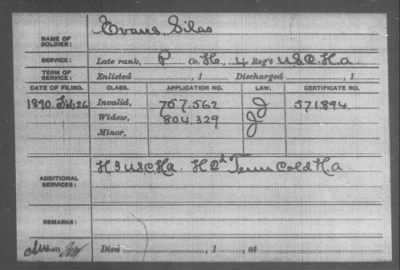 NAME OF SOLDIER: Evans Silas
SERVICE: Late rank, P Co. H, 4 Reg't U.S.C.H.A
TERM OF SERVICE: Enlisted , 1 Discharged , 1
DATE OF FILING. CLASS. APPLICATION NO. LAW. CERTIFICATE NO.
1890. 26 Invalid, 757.562 J 571894
Widow, 804,329 J
Minor,
ADDITIONAL SERVICES: H 3 USCHA. H 2d Tenn Cold H A
REMARKS:
Died , 1 , at